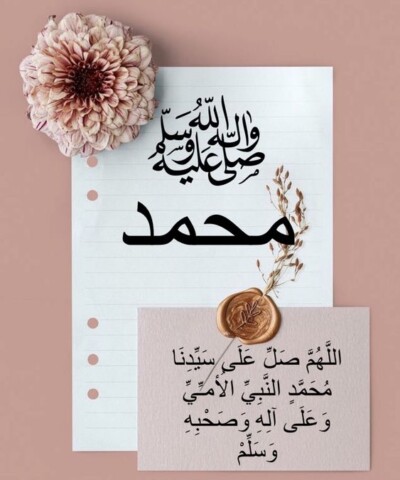 صلى الله عليه وآله وسلم
محمد
اللَّهُمَّ صَلِّ عَلَى سَيِّدِنَا
مُحَمَّدٍ النَّبِيِّ الأُمِّيِّ
وَعَلَى آلِهِ وَصَحْبِهِ
وَسَلِّمْ